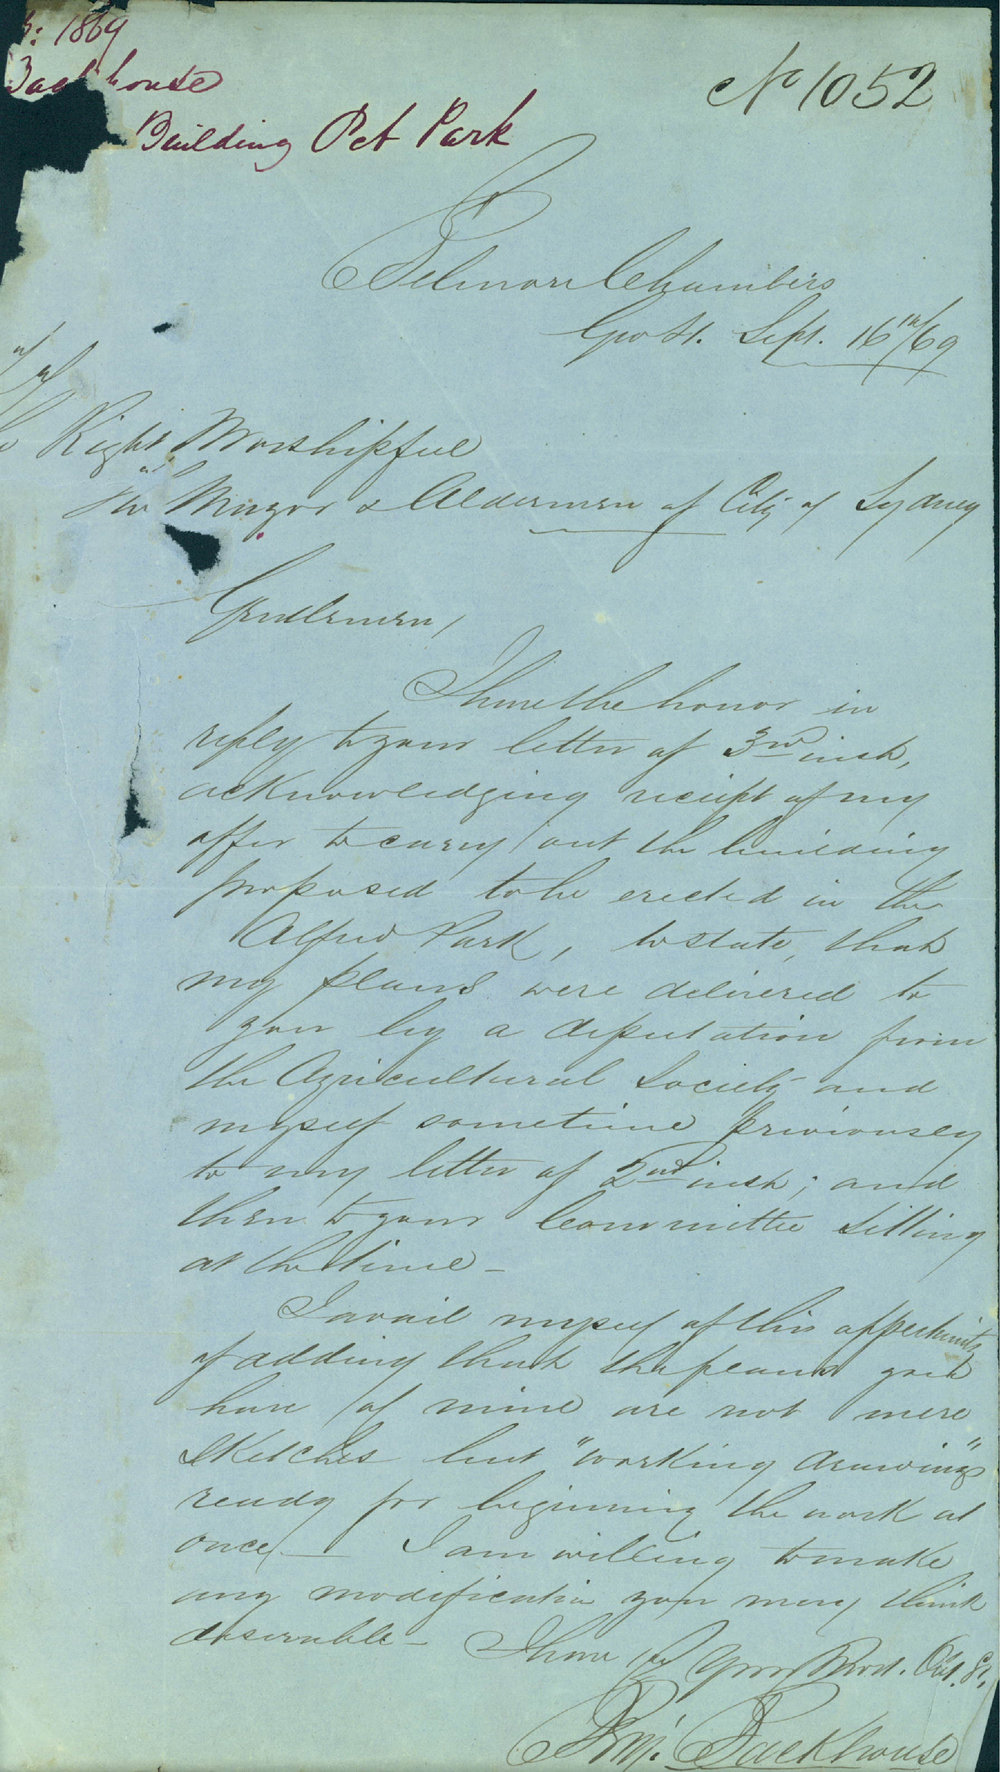 1869
Backhouse
Building Pct Park
No 1052
Belmore Chambers
Geo St. Sept. 16th/69
Right Worshipful
The Mayor & Aldermen of City of Sydney
Gentlemen,
I have the honor in
reply to your letter of 3rd inst,
acknowledging receipt of my
offer to carry out the building
proposed to be erected in the
Alfred Park, to state, that
my plans were delivered to
you by a deputation from
the Agricultural Society and
myself sometime previously
to my letter of 2nd inst; and
then to your Committee sitting
at the time –
I avail myself of this opportunity
of adding that the plans you
have of mine are not mere
sketches but "working drawings"
ready for beginning the work at
once – I am willing to make
any modification you may think
desirable – I have &c Your Most. Obt. St.
Benj. Backhouse